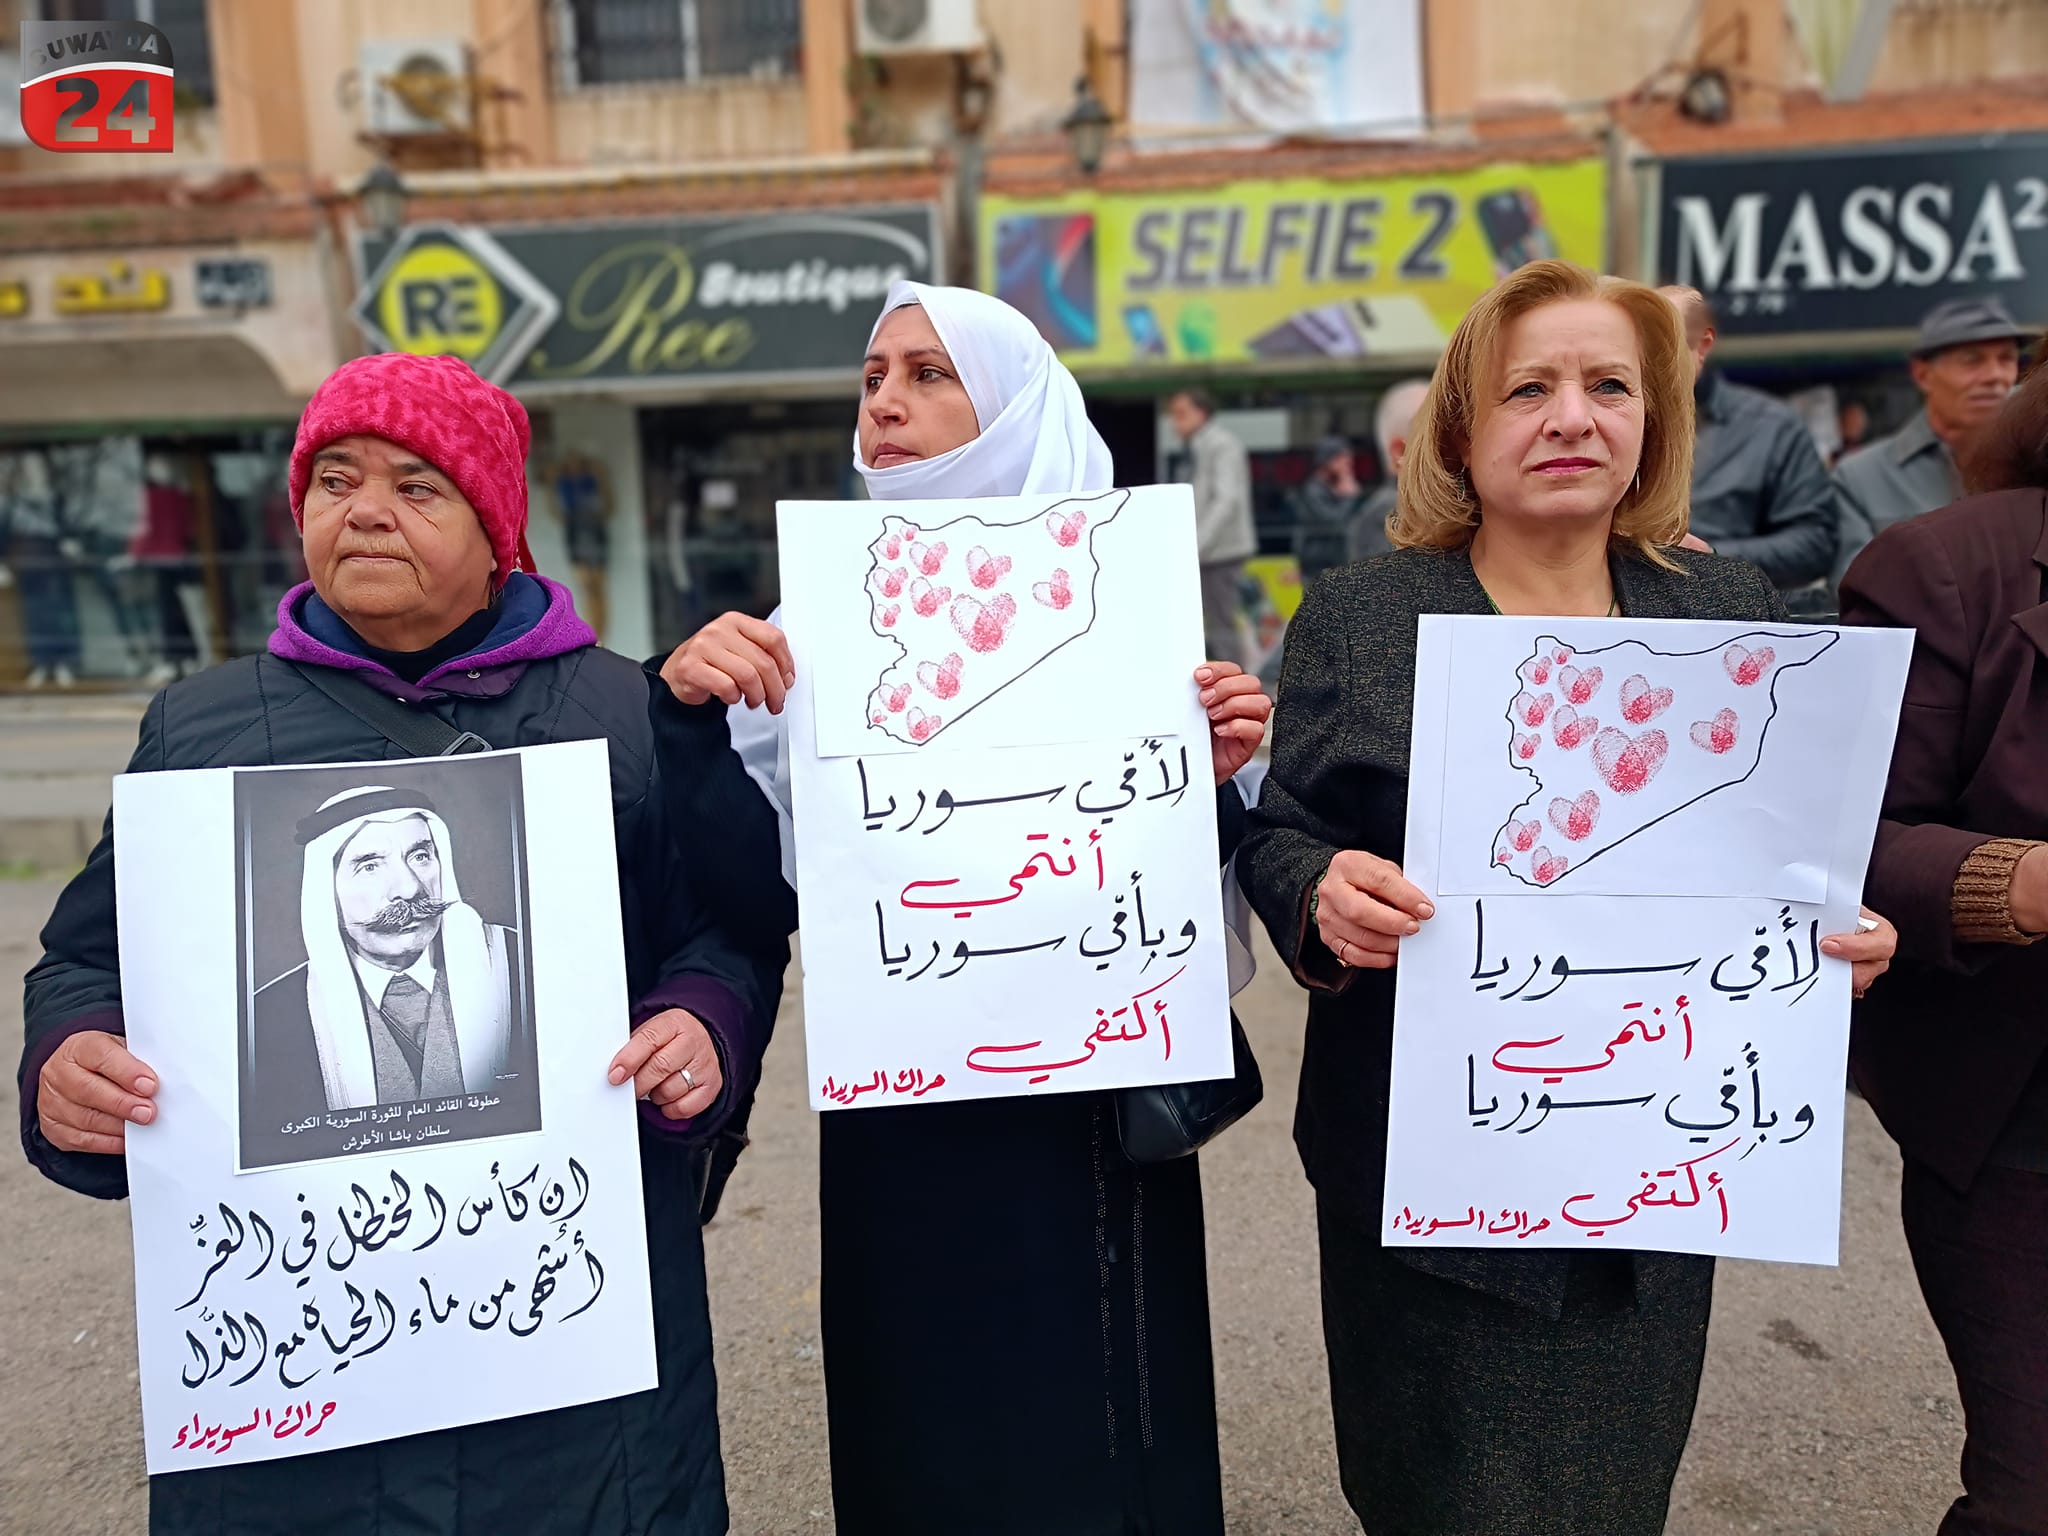 SUWAYDA
24
RE
Ree
Boutique
SELFIE 2
MASSA
عطوفة القائد العام للثورة السورية الكبرى
سلطان باشا الأطرش
ان كأس الحنظل في العزِّ
أشهى من ماء الحياة مع الذُّل
حراك السويداء
لأُمّي سوريا
أنتمي
وبأمّي سوريا
أكتفي
حراك السويداء
لأُمّي سوريا
أنتمي
وبأُمّي سوريا
أكتفي
حراك السويداء